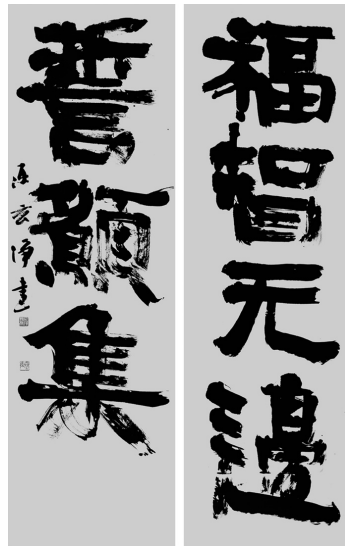 福智无邊
誓願集